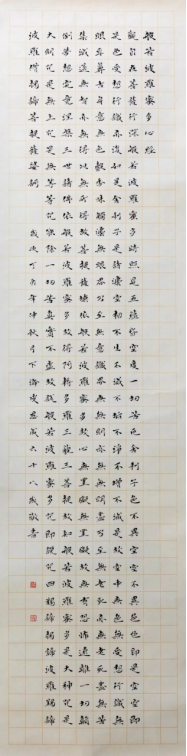 般若波羅蜜多心經
觀自在菩薩行深般若波羅蜜多時照見五蘊皆空度一切苦厄舍利子色不異空空不異色色即是空空即
是色受想行識亦復如是舍利子是諸法空相不生不滅不垢不淨不增不減是故空中無色無受想行識無
眼耳鼻舌身意無色聲香味觸法無眼界乃至無意識界無無明亦無無明盡乃至無老死亦無老死盡無苦
集滅道無智亦無得以無所得故菩提薩埵依般若波羅蜜多故心無罣礙無罣礙故無有恐怖遠離一切顛
倒夢想究竟涅槃三世諸佛依般若波羅蜜多故得阿耨多羅三藐三菩提故知般若波羅蜜多是大神咒是
大明咒是無上咒是無等等咒能除一切苦真實不虛故說般若波羅蜜多咒即說咒曰揭諦揭諦波羅揭諦
波羅僧揭諦菩提薩婆訶 歲次丁酉年仲秋月下澣 六十八歲敬書